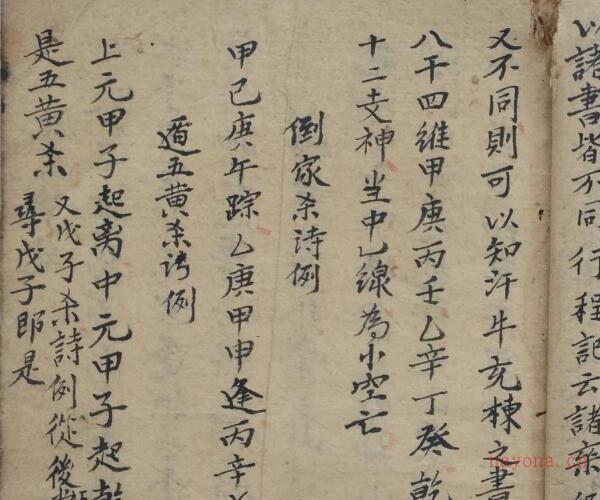 以諸書皆不同行程記云諸家
又不同則可以知汗牛充棟之書
八干四維甲庚丙壬乙辛丁癸乾
十二支神坐中乙線為小空亡
倒家杀诗例
甲己庚午踪乙庚甲申逢丙辛
遁五黄杀诗例
上元甲子起离中元甲子起乾
是五黄杀
又戊子杀詩例從後
尋戊子即是
nayona.cn